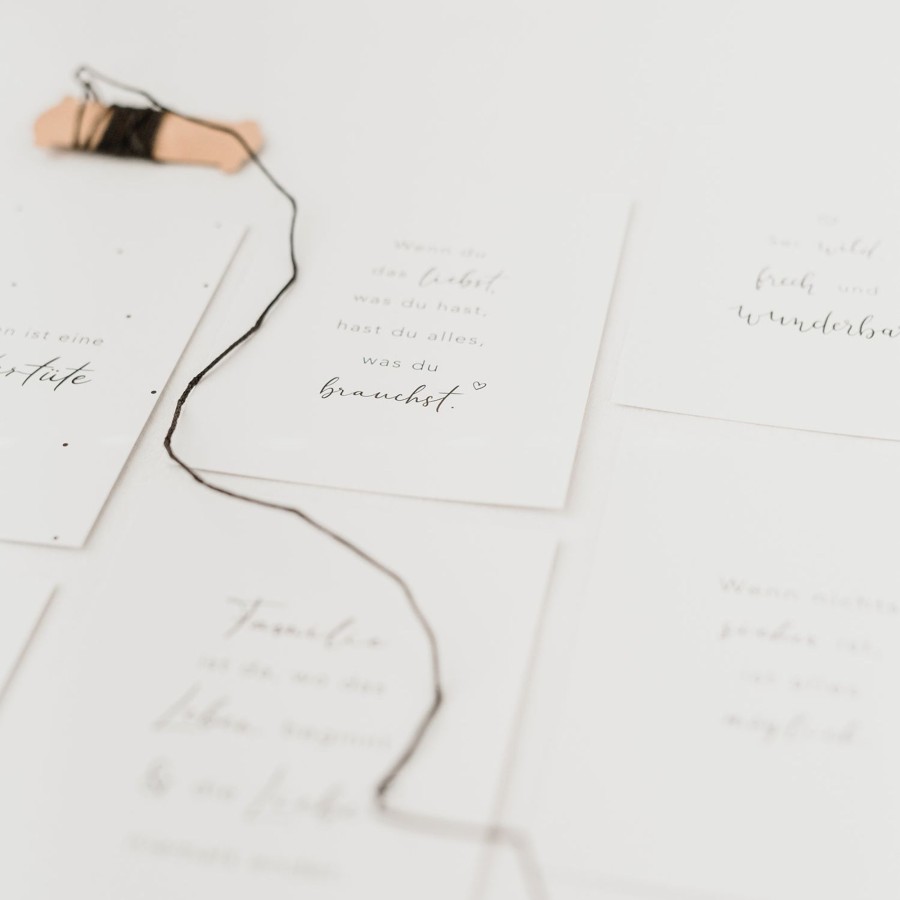 en ist eine
tüte
Wenn du
das liebst,
was du hast,
hast du alles,
was du
brauchst.
So wild
frech und
wunderba
Familie
ist da, wo das
Leben beginnt
& die Liebe
Wenn nichts
sicher ist,
ist alles
möglich.